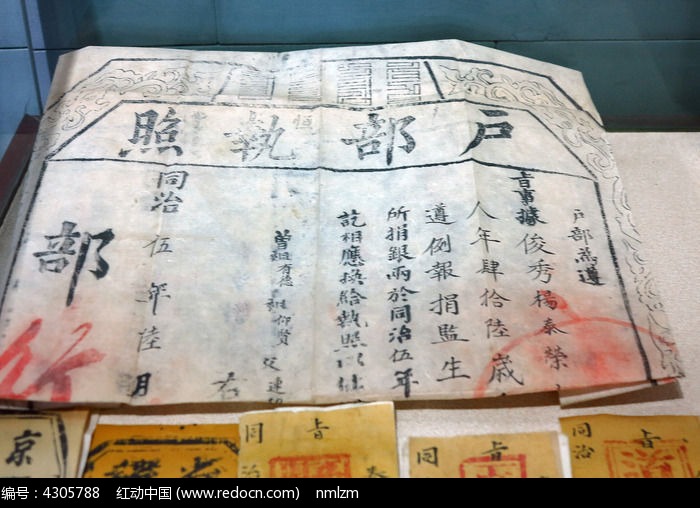 戶部執照
戶部為遵
旨事據俊秀楊秦榮
人年肆拾陸歲
遵例報捐監生
所捐銀兩於同治伍年
訖相應換給執照以
曾祖有德 祖仰賢 父連
右
同治伍年陸月
部
行
京
同治
旨
同
旨
同治
旨
编号：4305788 红动中国 (www.redocn.com) nmlzm